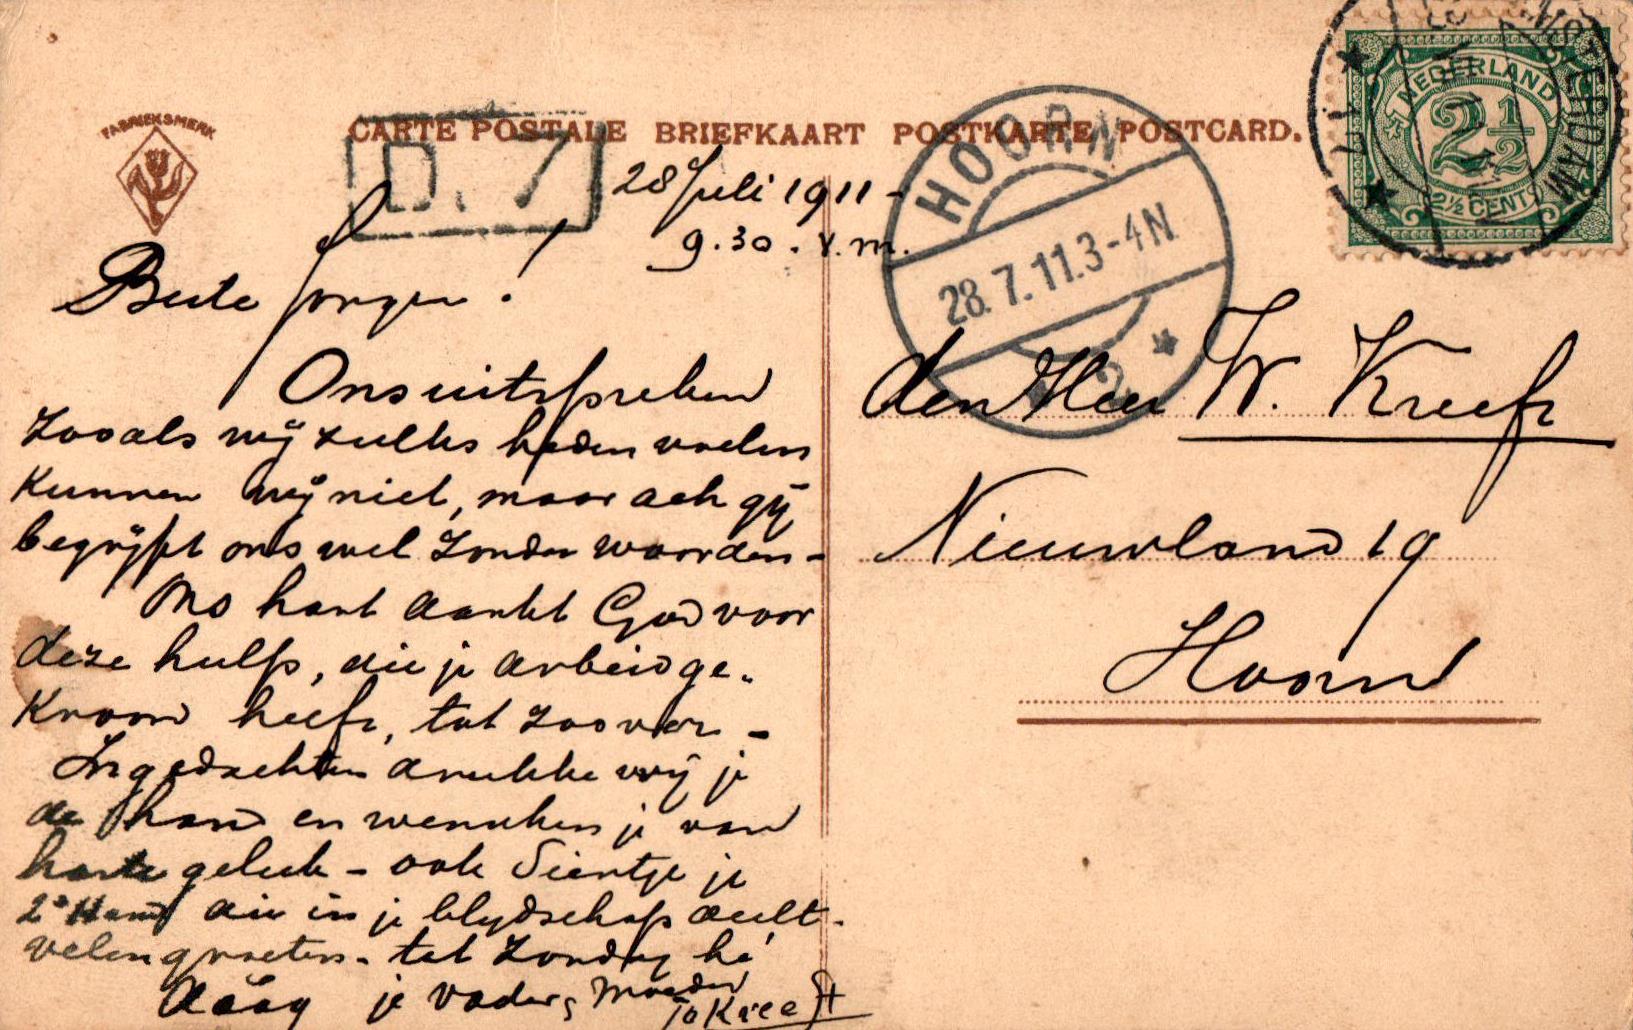 FABRIEKSMERK
CARTE POSTALE BRIEFKAART POSTKARTE POSTCARD.
D. 7
HOORN
28.7.11.3-4N
2
AMSTERDAM
NEDERLAND
2½
2½ CENT
28 Juli 1911 -
9.30. v.m.
Beste jongen!
Ons uitspreken
Zooals wij zulks heden voelen
Kunnen wij niet, maar ach gij
begrijpt ons wel Zonder woorden -
Ons hart dankt God voor
deze hulp, die je arbeid ge-
Kroond heeft, tot Zoover -
In gedachten drukke wij je
de hand en wenschen je van
harte geluk - ook Sientje je
2e Hand die in je blydschap deelt -
velen groeten - tot Zondag hé
Dààg je vader, Moeder
To Kreeft
den Heer W. Kreeft
Nieuwland 19
Hoorn